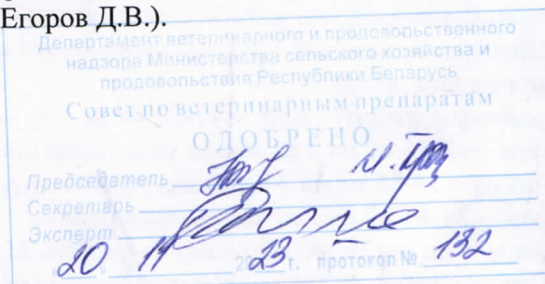 Егоров Д.В.).
Департамент ветеринарного и продовольственного
надзора Министерства сельского хозяйства и
продовольствия Республики Беларусь
Совет по ветеринарным препаратам
ОДОБРЕНО
Председатель
Секретарь
Эксперт
20 11 2023 г. протокол № 132